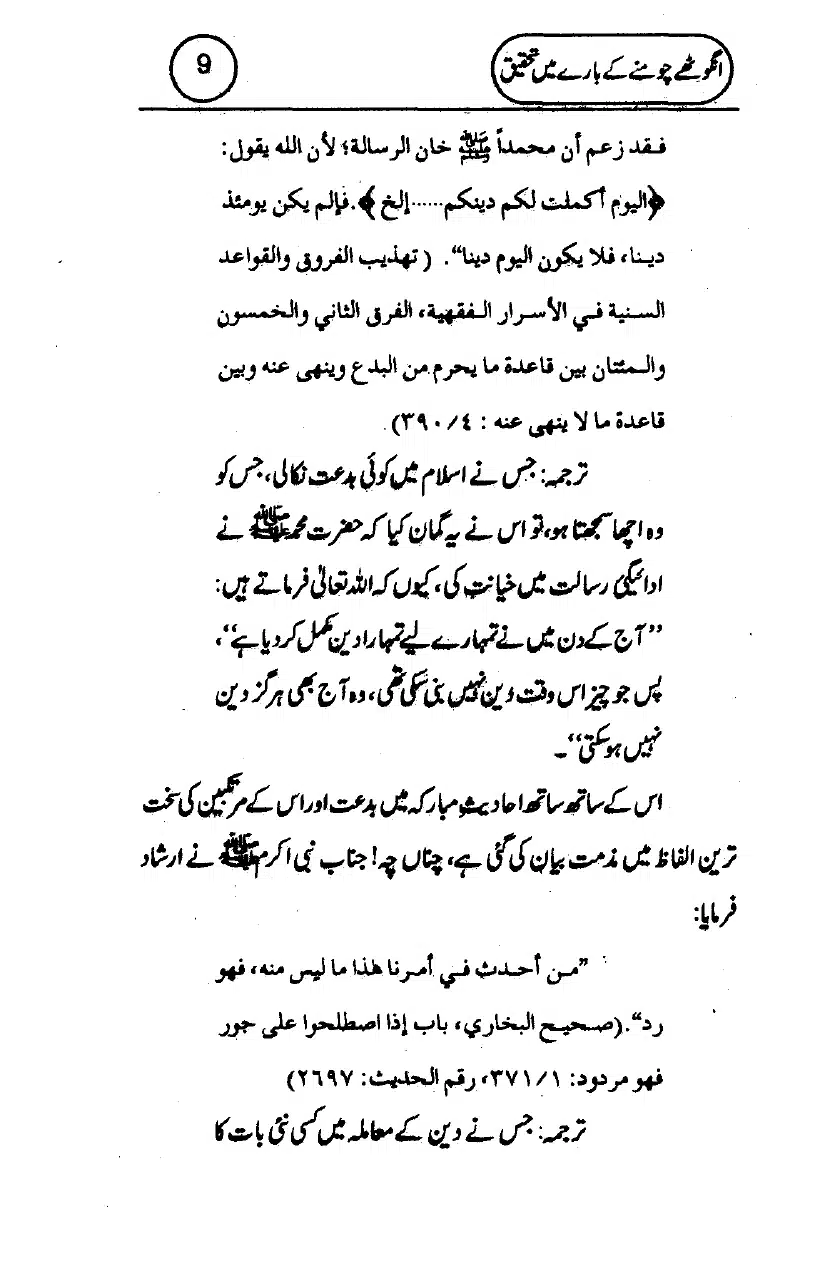 انگوٹھے چومنے کے بارے میں تحقیق
9
فقد زعم أن محمداً ﷺ خان الرسالة؛ لأن الله يقول:
﴿اليوم أكملت لكم دينكم......إلخ﴾. فإلم يكن يومئذ
دينا، فلا يكون اليوم دينا“. ( تهذيب الفروق والقواعد
السنية في الأسرار الفقهية، الفرق الثاني والخمسون
والمئتان بين قاعدة ما يحرم من البدع وينهى عنه وبين
قاعدة ما لا ينهى عنه : ٤/ ٣٩٠)
ترجمہ: جس نے اسلام میں کوئی بدعت نکالی، جس کو
وہ اچھا سمجھتا ہو، تو اس نے یہ گمان کیا کہ حضرت محمد ﷺ نے
ادائیگیٔ رسالت میں خیانت کی، کیوں کہ اللہ تعالیٰ فرماتے ہیں:
”آج کے دن میں نے تمہارے لیے تمہارا دین مکمل کر دیا ہے“،
پس جو چیز اس وقت دین نہیں بنی سکی تھی، وہ آج بھی ہرگز دین
نہیں ہو سکتی“۔
اس کے ساتھ ساتھ احادیثِ مبارکہ میں بدعت اور اس کے مرتکبین کی سخت
ترین الفاظ میں مذمت بیان کی گئی ہے، چناں چہ! جناب نبی اکرم ﷺ نے ارشاد
فرمایا:
”من أحدث في أمرنا هذا ما ليس منه، فهو
رد“. (صحيح البخاري، باب إذا اصطلحوا على جور
فهو مردود: ١/ ٣٧١، رقم الحديث: ٢٦٩٧)
ترجمہ: جس نے دین کے معاملہ میں کسی نئی بات کا